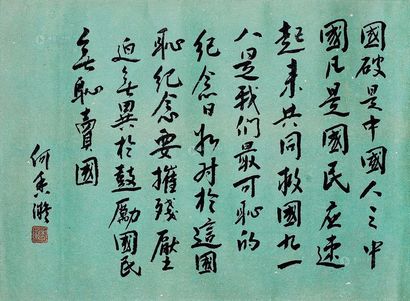 國破是中國人之中
國凡是國民应速
起来共同救國九一
八是我们最可恥的
纪念日如对於這國
恥纪念要摧残壓
迫無異於鼓勵國民
無恥賣國
何香凝